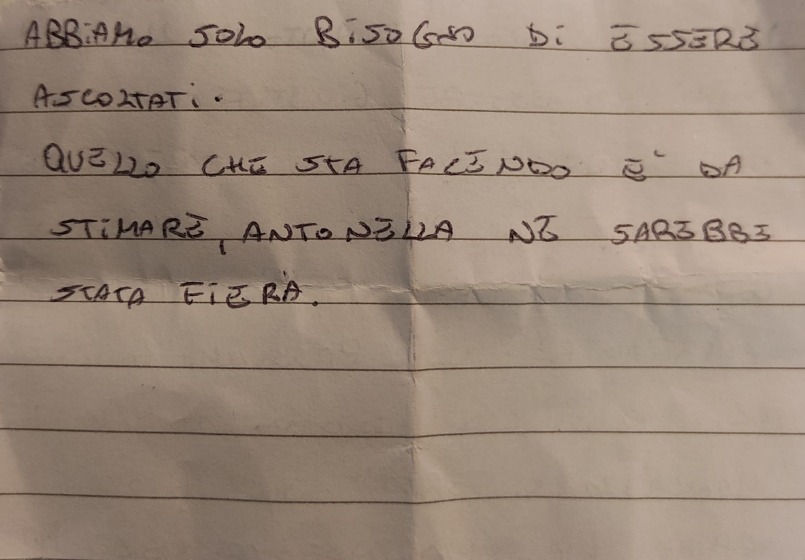 ABBiAMo SOLO BiSOGNO Di ESSERE
ASCOLTATi.
QUELLO CHE STA FACENDO E' DA
STiMARE, ANTONELLA NE SAREBBE
STATA FiERA.